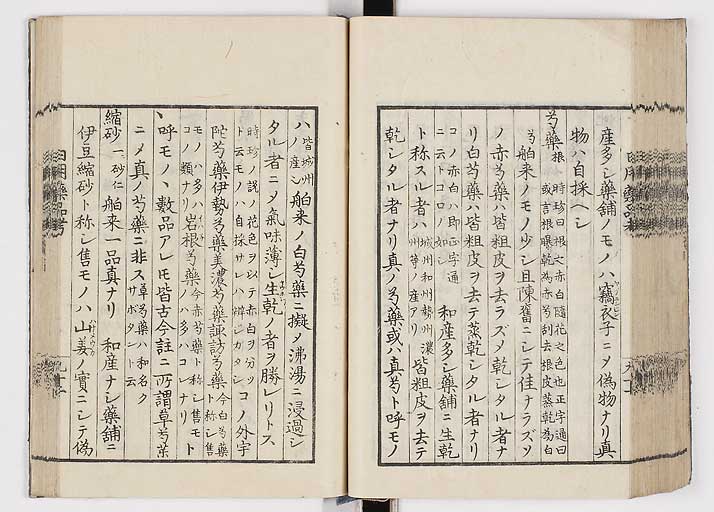 産多シ藥舗ノモノハ竊衣子ニメ偽物ナリ真
物ハ自採ヘシ
芍藥 根 時珍曰根文赤白随花之色也正字通曰
或言根曝乾為赤芍刮去根皮蒸乾為白
芍 舶来ノモノ少シ且陳舊ニシテ佳ナラズソ
ノ赤芍藥ハ皆粗皮ヲ去ラズメ乾シタル者ナ
リ白芍藥ハ皆粗皮ヲ去テ蒸乾シタル者ナリ
コノ赤白ハ即正字通
ニ云トコロノ如シ 和産多シ藥舗ニ生乾
ト称スル者ハ 城州和州勢州濃
州等ノ産アリ 皆粗皮ヲ去テ
乾シタル者ナリ真ノ芍藥或ハ真芍ト呼モノ
ハ 皆城州
ノ産 舶来ノ白芍藥ニ擬メ沸湯ニ浸過シ
タル者ニメ氣味薄シ生乾ノ者ヲ勝レリトス
時珍ノ説ノ花色ヲ以テ赤白ヲ分ツ
ト云モノハ自採サレハ辨シガタシ コノ外宇
陀芍藥伊勢芍藥美濃芍藥諏訪芍藥 今白芍藥
ト称シ售
モノハ多ハ
コノ類ナリ 岩根芍藥 今赤芍藥ト称シ售モ
ノハ多ハコレナリ ト
呼モノ、數品アレモ皆古今註ニ所謂草芍藥
ニメ真ノ芍藥ニ非ス 草芍藥ハ和名ク
サボタント云
縮砂 一、砂仁 舶来一品真ナリ 和産ナシ藥舗ニ
伊豆縮砂ト称シ售モノハ山姜ノ實ニシテ偽
日用藥品考